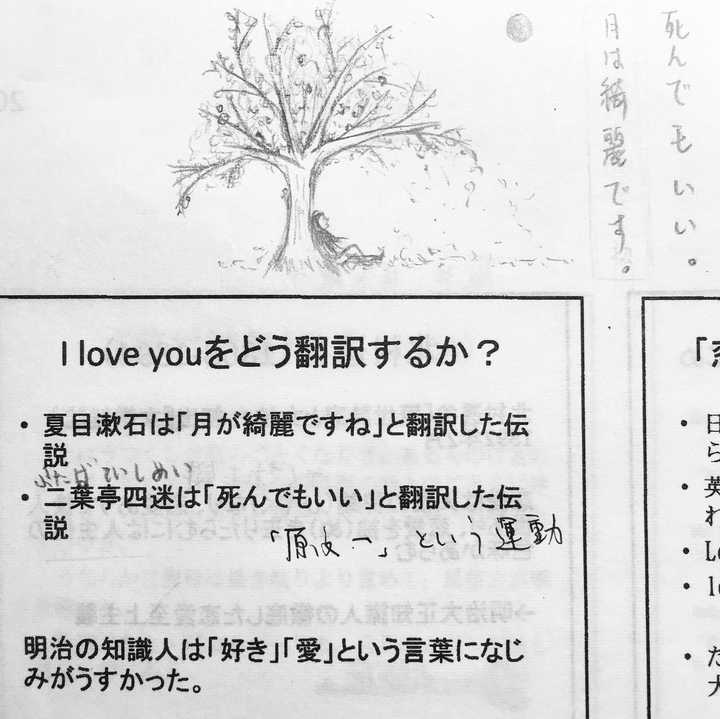 死んでもいい。
月は綺麗です。
I love youをどう翻訳するか？
・夏目漱石は「月が綺麗ですね」と翻訳した伝
説
ふたばていしめい
・二葉亭四迷は「死んでもいい」と翻訳した伝
説
という運動
明治の知識人は「好き」「愛」という言葉になじ
みがうすかった。
・日
ら
・英